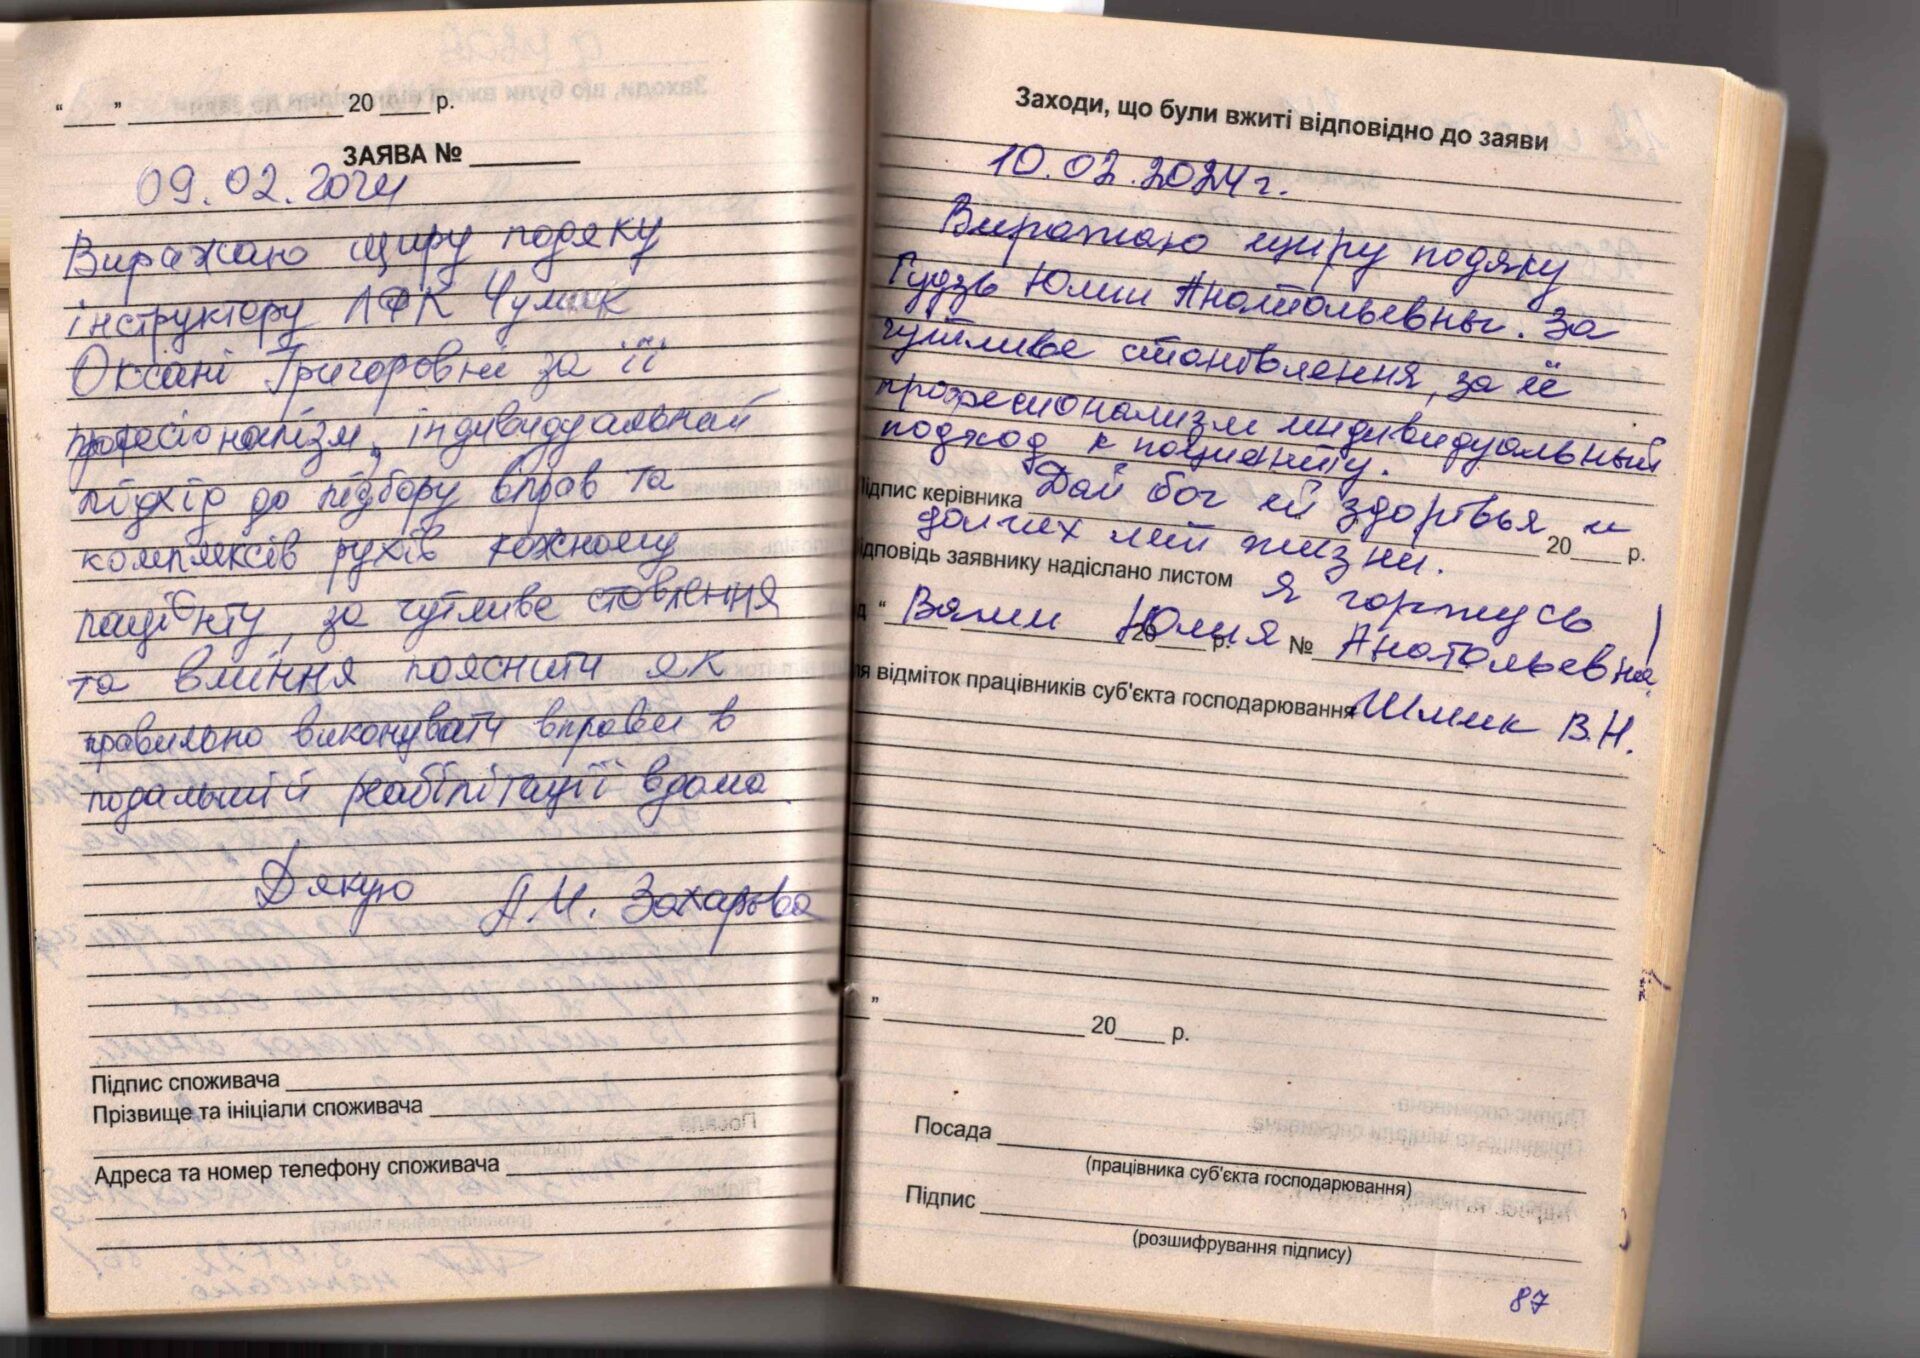 “____” ________________ 20 ____ р.
ЗАЯВА № ________
09.02.2024
Виражаю щиру подяку
інструктору ЛФК Чумак
Оксані Григоровні за її
професіоналізм, індивидуальний
підхід до підбору вправ та
комплексів рухів кожному
пацієнту, за чутливе ставлення
та вміння пояснити як
правильно виконувати вправи в
подальшій реабілітації вдома.
Дякую А.М. Захарова
Підпис споживача
Прізвище та ініціали споживача
Адреса та номер телефону споживача
Заходи, що були вжиті відповідно до заяви
10.02.2024 г.
Виражаю щиру подяку
Гудзь Юлии Анатольевны. За
чутливе становления, за её
професионализм индивидуальный
подход к пациенту.
Підпис керівника Дай бог ей здоровья и
долгих лет жизни. 20____ р.
ідповідь заявнику надіслано листом Я горжусь
“ Вами Юлия Анатольевна! 20____ р. №
ля відміток працівників суб'єкта господарювання Шмик В.Н.
” ________________ 20____ р.
Посада
(працівника суб'єкта господарювання)
Підпис
(розшифрування підпису)
87